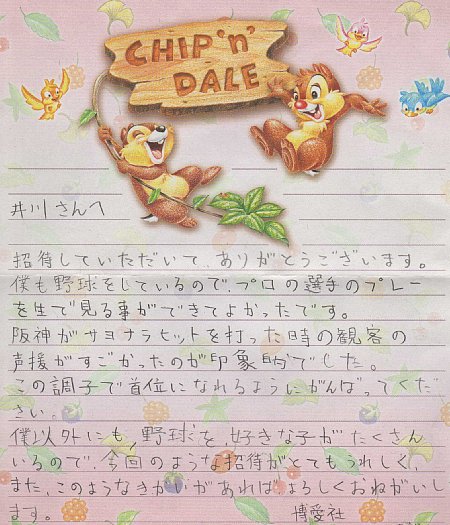 CHIP 'n'
DALE
井川さんへ
招待していただいて、ありがとうございます。
僕も野球をしているので、プロの選手のプレー
を生で見る事ができてよかったです。
阪神がサヨナラヒットを打った時の観客の
声援がすごかったのが印象的でした。
この調子で首位になれるようにがんばってくだ
さい。
僕以外にも、野球を、好きな子がたくさん
いるので、今回のような招待がとてもうれしく、
また、このようなきかいがあればよろしくおねがいし
ます。
博愛社